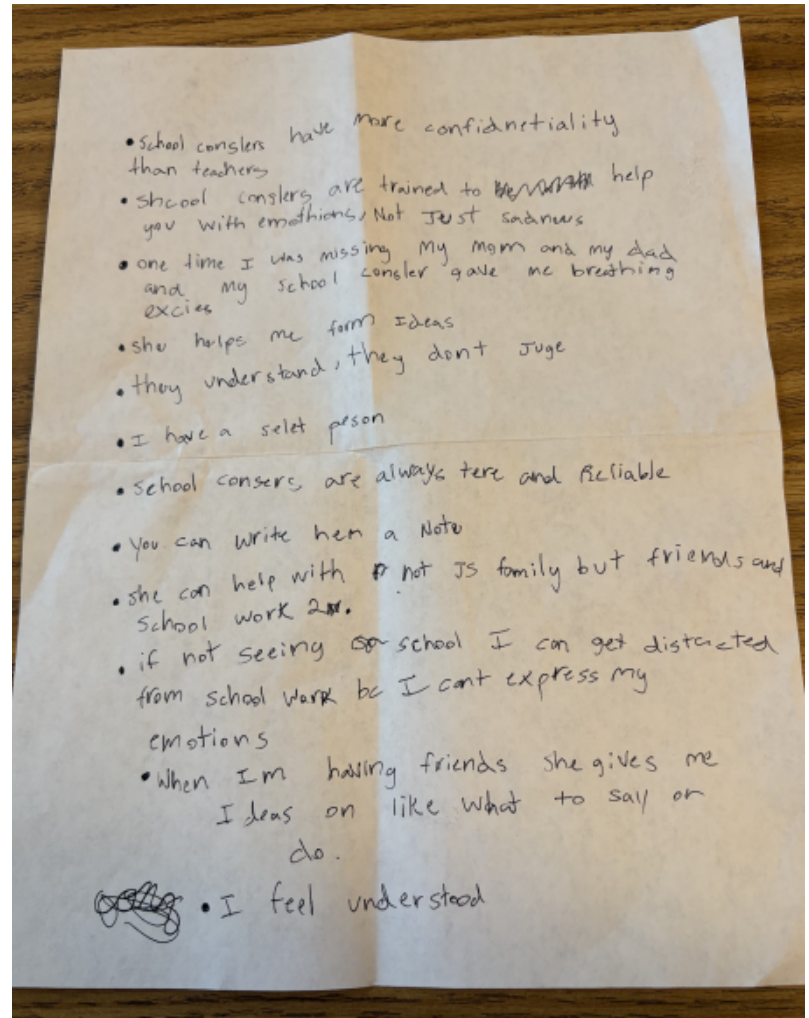 • School conslers have more confidnetiality
than teachers
• shcool conslers are trained to help
you with emothions, Not Just sadnuss
• one time I was missing my mom and my dad
and my school consler gave me breathing
excies
• she helps me form Ideas
• they understand, they dont Juge
• I have a selet peson
• School consers, are always tere and Reliable
• You can write hem a Note
• she can help with not JS family but friends and
school work 2.
• if not seeing school I can get distacted
from school work bc I cant express my
emotions
• When Im having friends she gives me
Ideas on like what to say or
do.
• I feel understood